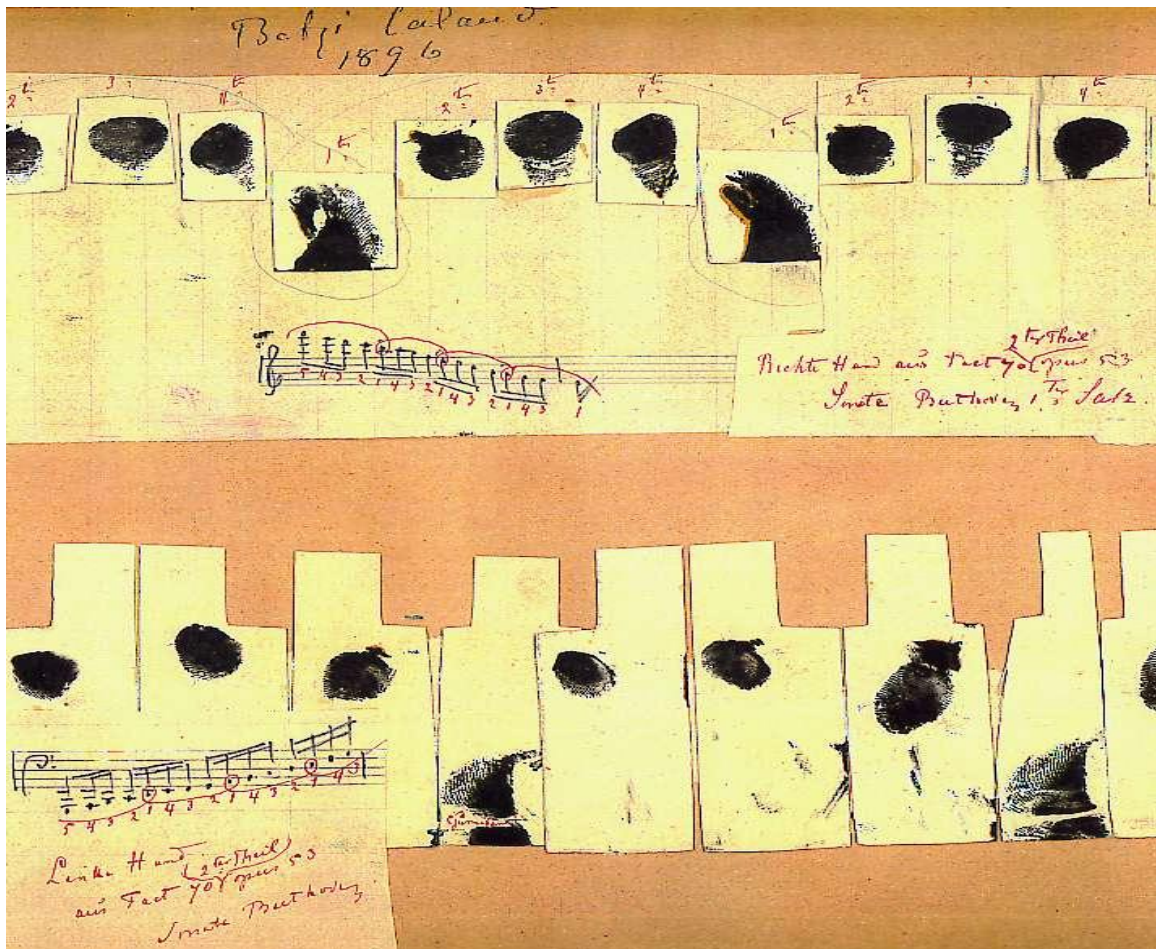 1896
2te 3 4te 1te 2te 3te 4te 1te 2te 3 4te
5 4 3 2 1 4 3 2 1 4 3 2 1 4 3 1
2ter Theil
Rechte Hand aus Tact 70 (opus 53
Sonate Beethoven 1ter Satz.
5 4 3 2 1 4 3 2 1 4 3 2 1 4 3
Linke Hand (2ter Theil)
aus Tact 70 opus 53
Sonate Beethoven